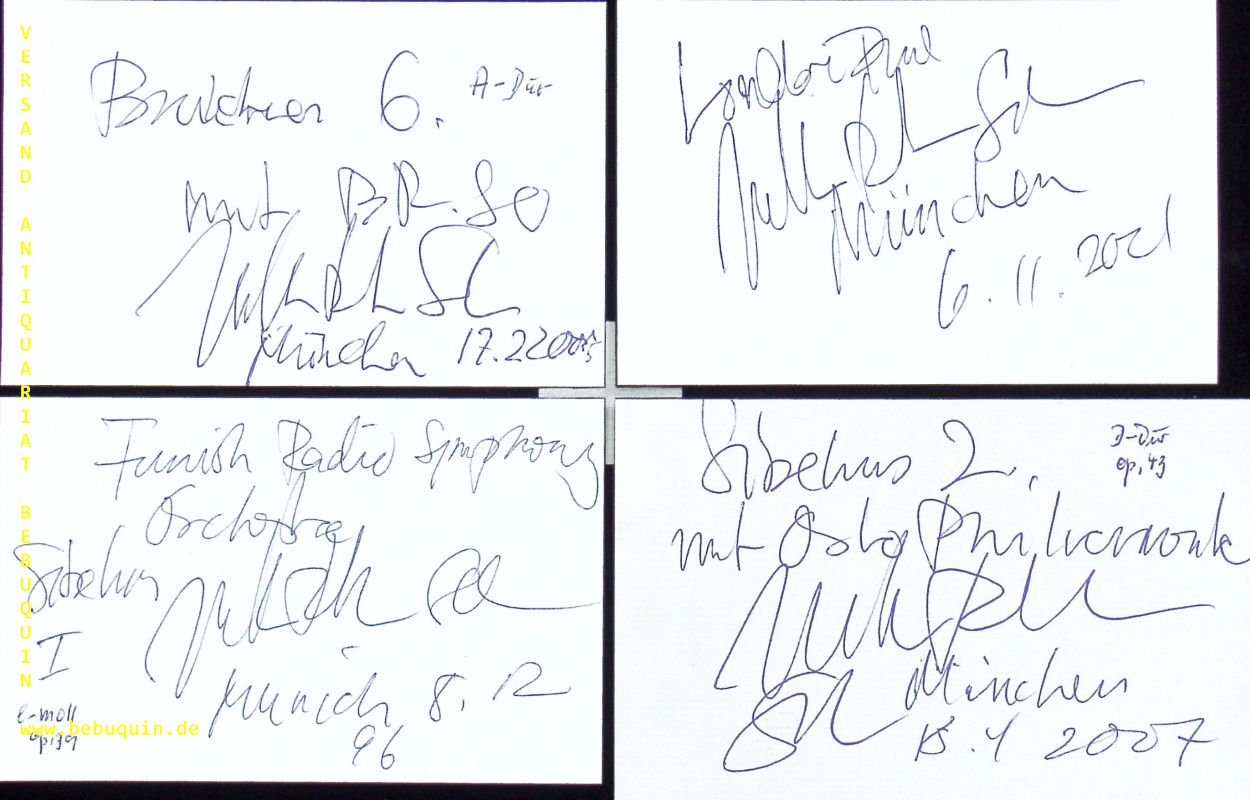 Bruckner 6. A-Dur
mit BR. SO
München 17.2 2005
London Phil
München
6.11.2001
Finnish Radio Symphony
Orchestra
Sibelius
I
Munich 8.12
96
e-moll
op. 39
Sibelius 2. D-Dur
op. 43
mit Oslo Philharmonik
München
2007
VERSAND ANTIQUARIAT BEBUQUIN
www.bebuquin.de